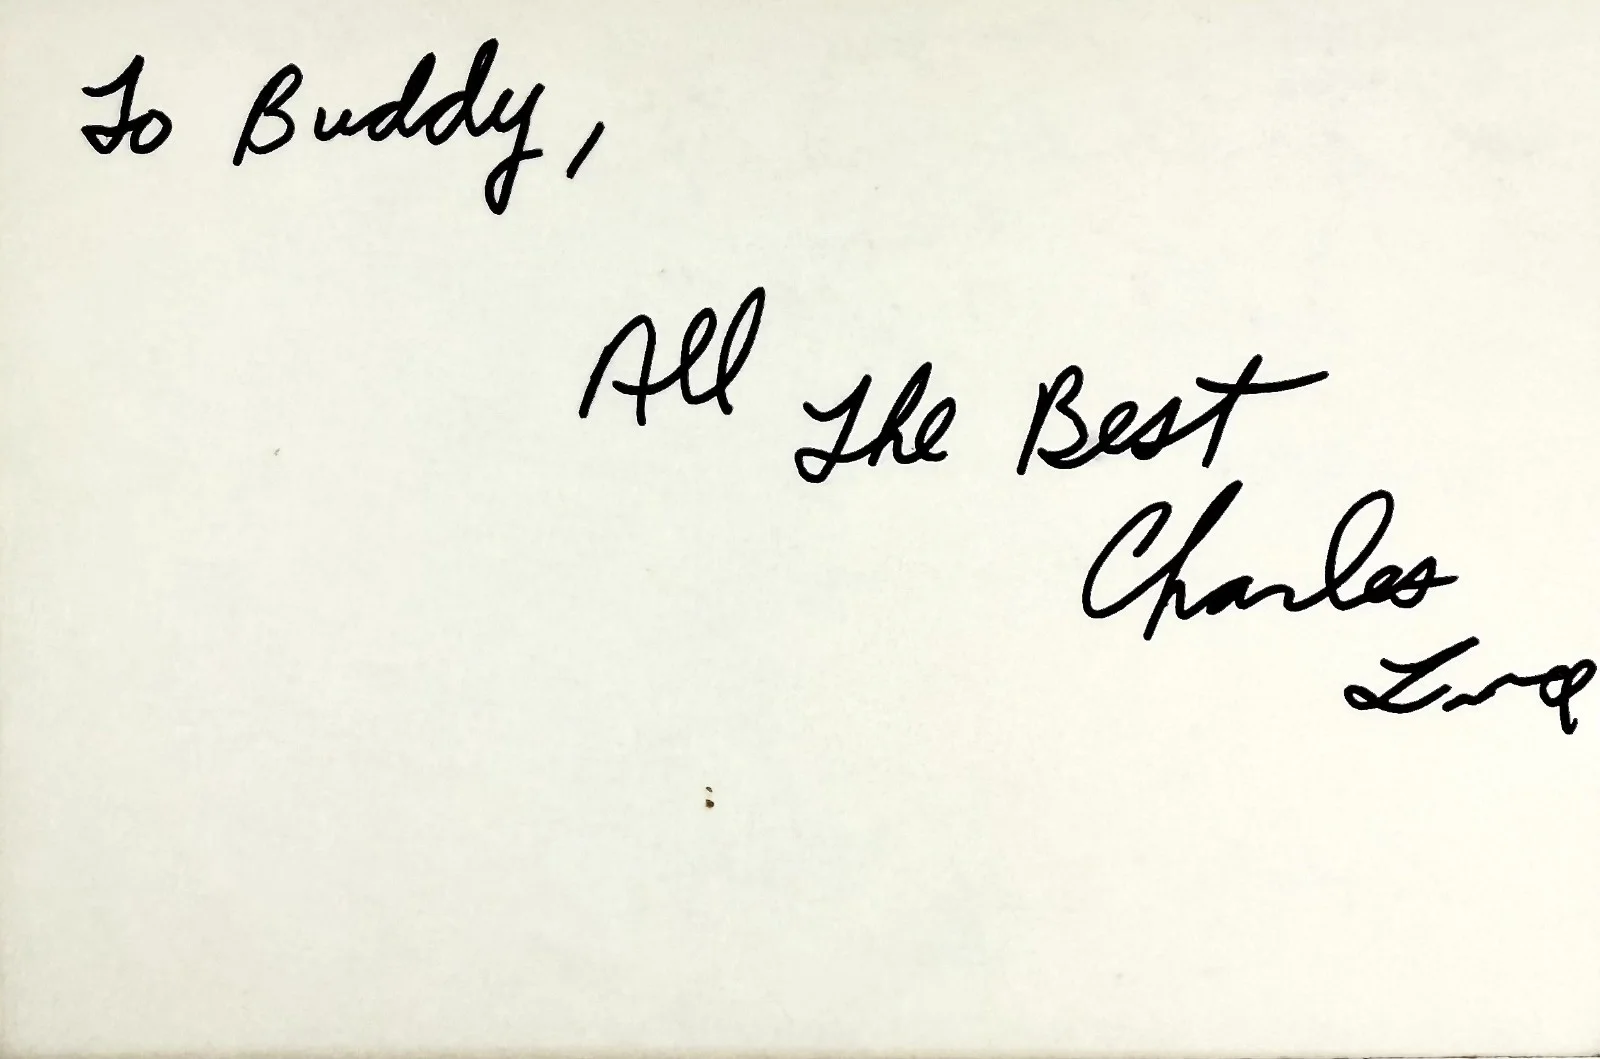 To Buddy,
All The Best
Charles